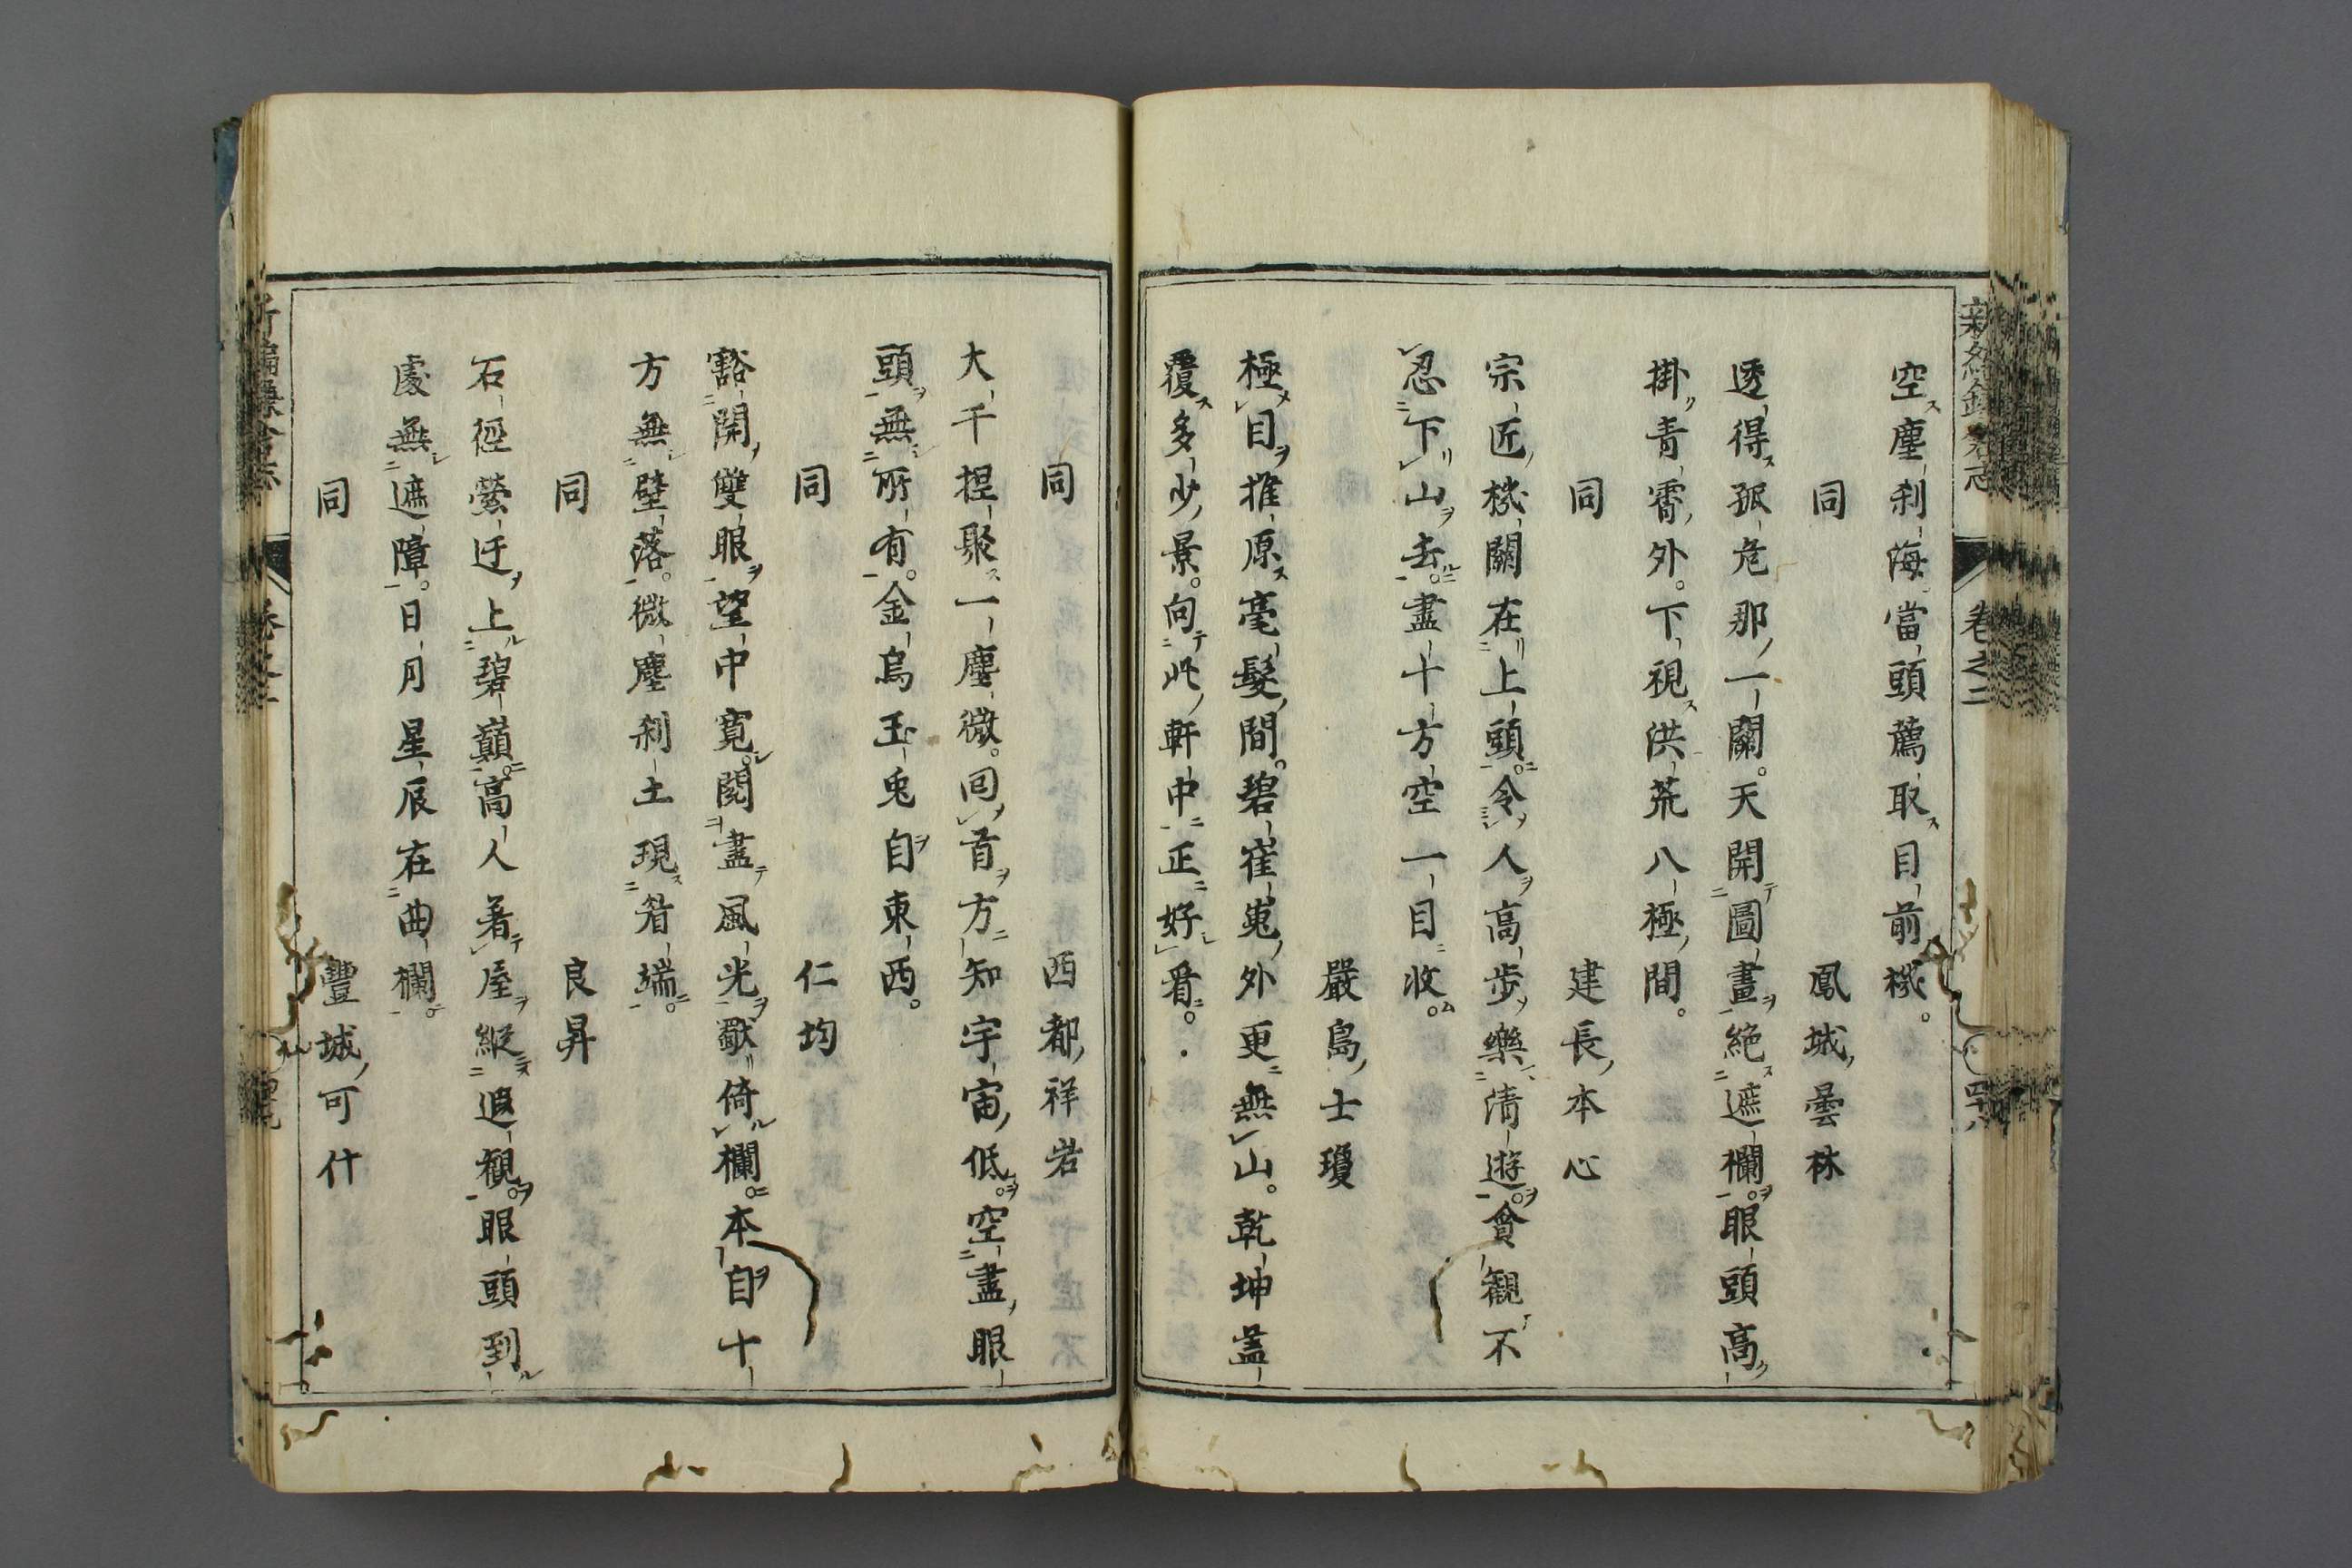 空塵刹海當頭薦取目前機。
同　鳳城曇林
透得孤危那一關。天開圖畫絶遮欄。眼頭高
掛青霄外。下視洪荒八極間。
同　建長本心
宗匠機關在上頭。令人高歩樂清遊。貪觀不
忍下山去。盡十方空一目收。
嚴島士瓊
極目推原毫髮間。碧崔嵬外更無山。乾坤蓋
覆多少景。向此軒中正好看。
卷之二
同　西都祥岩
大千捏聚一塵微。回首方知宇宙低。空盡眼
頭無所有。金烏玉兎自東西。
同　仁均
豁開雙眼望中寛。閲盡風光獸倚欄。本自十
方無壁落。微塵刹土現眉端。
同　良昇
石徑縈迂上碧巓。高人著屋縱遐観。眼頭到
處無遮障。日月星辰在曲欄。
同　豐城可什